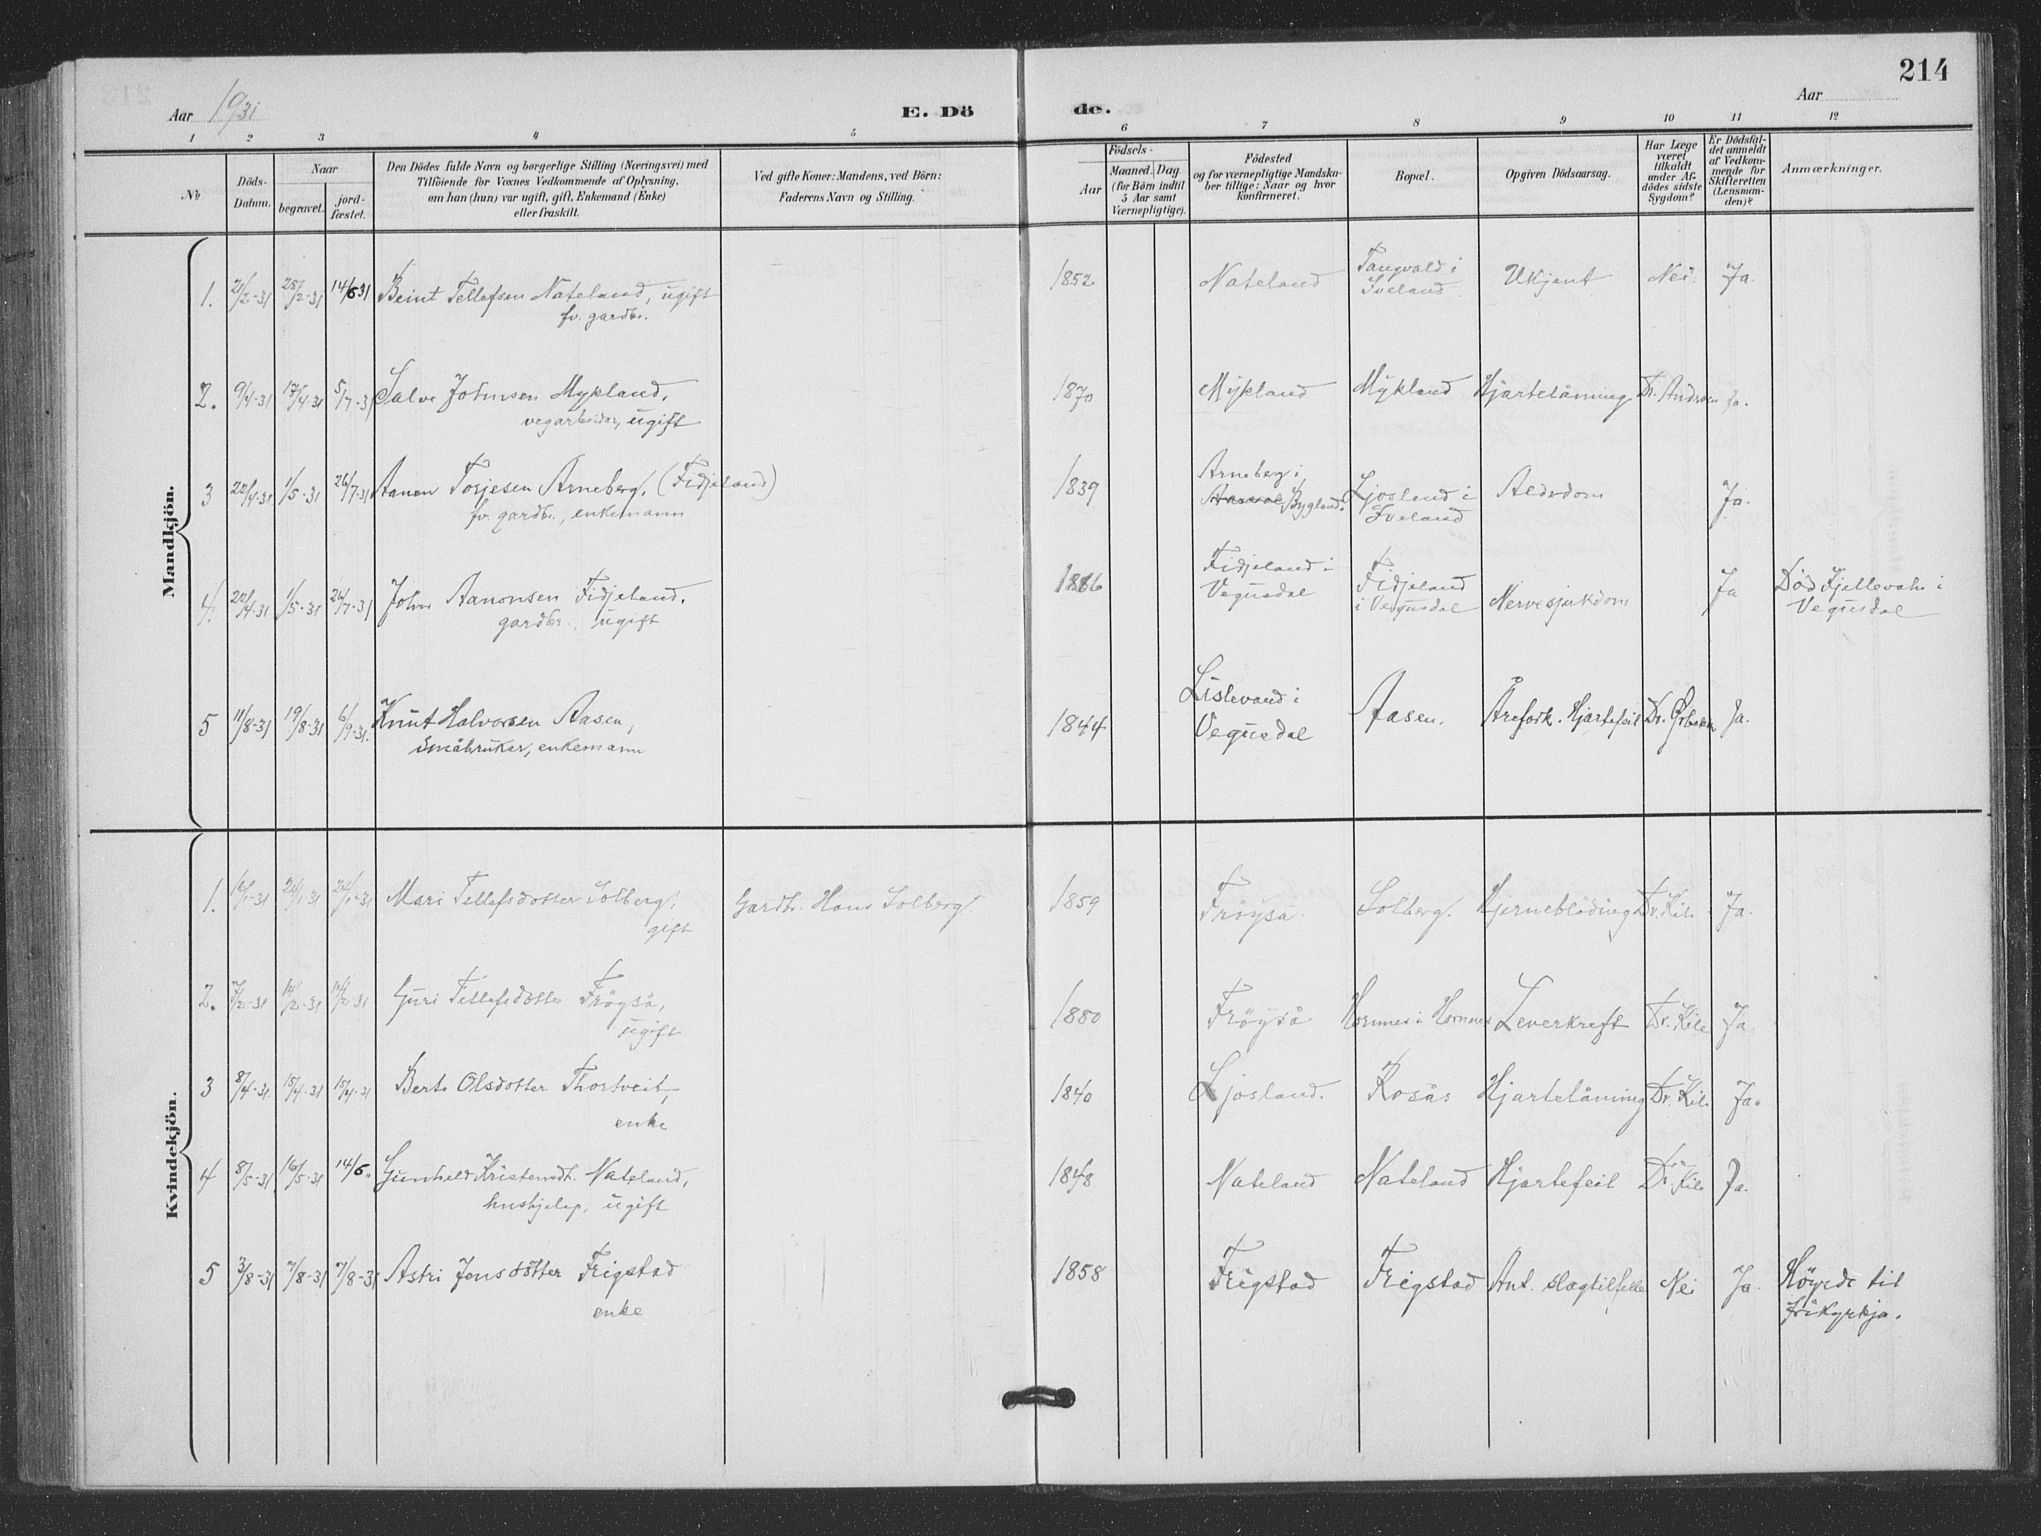 214
Aar 1931
E. Dö
de.
Aar
1 2 3 4 5 6 7 8 9 10 11 12
No
Döds-
Datum.
Naar
begravet.
jord-
fæstet.
Den Dödes fulde Navn og borgerlige Stilling (Næringsvei) med
Tilföiende for Voxnes Vedkommende af Oplysning,
om han (hun) var ugift, gift, Enkemand (Enke)
eller fraskilt.
Ved gifte Koner: Mandens, ved Börn:
Faderens Navn og Stilling.
Födsels-
Aar
Maaned. Dag
(for Börn indtil
5 Aar samt
Værnepligtige).
Födested
og for værnepligtige Mandska-
ber tillige: Naar og hvor
konfirmeret.
Bopæl.
Opgiven Dödsaarsag.
Har Læge
været
tilkaldt
under Af-
dödes sidste
Sygdom?
Er Dödsfal-
det anmeldt
af Vedkom-
mende for
Skifteretten
(Lensman-
den)?
Anmærkninger.
Mandkjön.
1. 21/2-31 28/2-31 14/6 31 Beint Tellefsen Nateland, ugift 1852 Nateland Tangvald i Ukjent Nei. Ja.
fv. gardbr. Iveland
2. 9/4-31 17/4-31 5/7-31 Salve Johnsen Mykland, 1870 Mykland Mykland Hjartelåming Dr. Andersen Ja.
vegarbeidar, ugift
3 22/4-31 1/5-31 26/7-31 Aanon Torjesen Arneberg. (Fidjeland) 1839 Arneberg i Ljosland i Alderdom Ja.
fv. gardbr., enkemann Bygland. Iveland
4. 22/4-31 1/5-31 26/7-31 John Aanonsen Fidjeland, 1886 Fidjeland i Fidjeland Nervesjukdom Ja Död Fjellevatn i
gardbr., ugift Vegusdal i Vegusdal Vegusdal
5 11/8-31 19/8-31 6/9-31. Knut Halvorsen Aasen, 1844 Lislevand i Aasen. Årefork. Hjartefeil Dr. Ja.
småbrukar, enkemann Vegusdal
Kvindekjön.
1. 16/1-31 24/1-31 24/1-31 Mari Tellefsdotter Solberg, Gardbr. Hans Solberg 1859 Fröyså. Solberg. Hjerneblöding Dr. Kile Ja.
gift
2. 7/2-31 14/2-31 14/2-31 Guri Tellefsdotter Fröyså, 1880 Fröyså Hornnes i Hornnes Leverkreft Dr. Kile Ja.
ugift
3 8/4-31 15/4-31 15/4-31 Berte Olsdotter Thortveit, 1840 Ljosland. Rosås Hjartelåming Dr. Kile Ja.
enke
4 8/5-31 16/5-31 14/6. Gunhild Kristensdt. Nateland, 1848 Nateland Nateland Hjartefeil Dr. Kile Ja.
hushjelp, ugift
5 3/8-31 7/8-31 7/8-31 Astri Jensdotter Frigstad 1858 Frigstad Frigstad Ant. slagtilfelle Nei Ja. Höyrde til
enke frikyrkja.